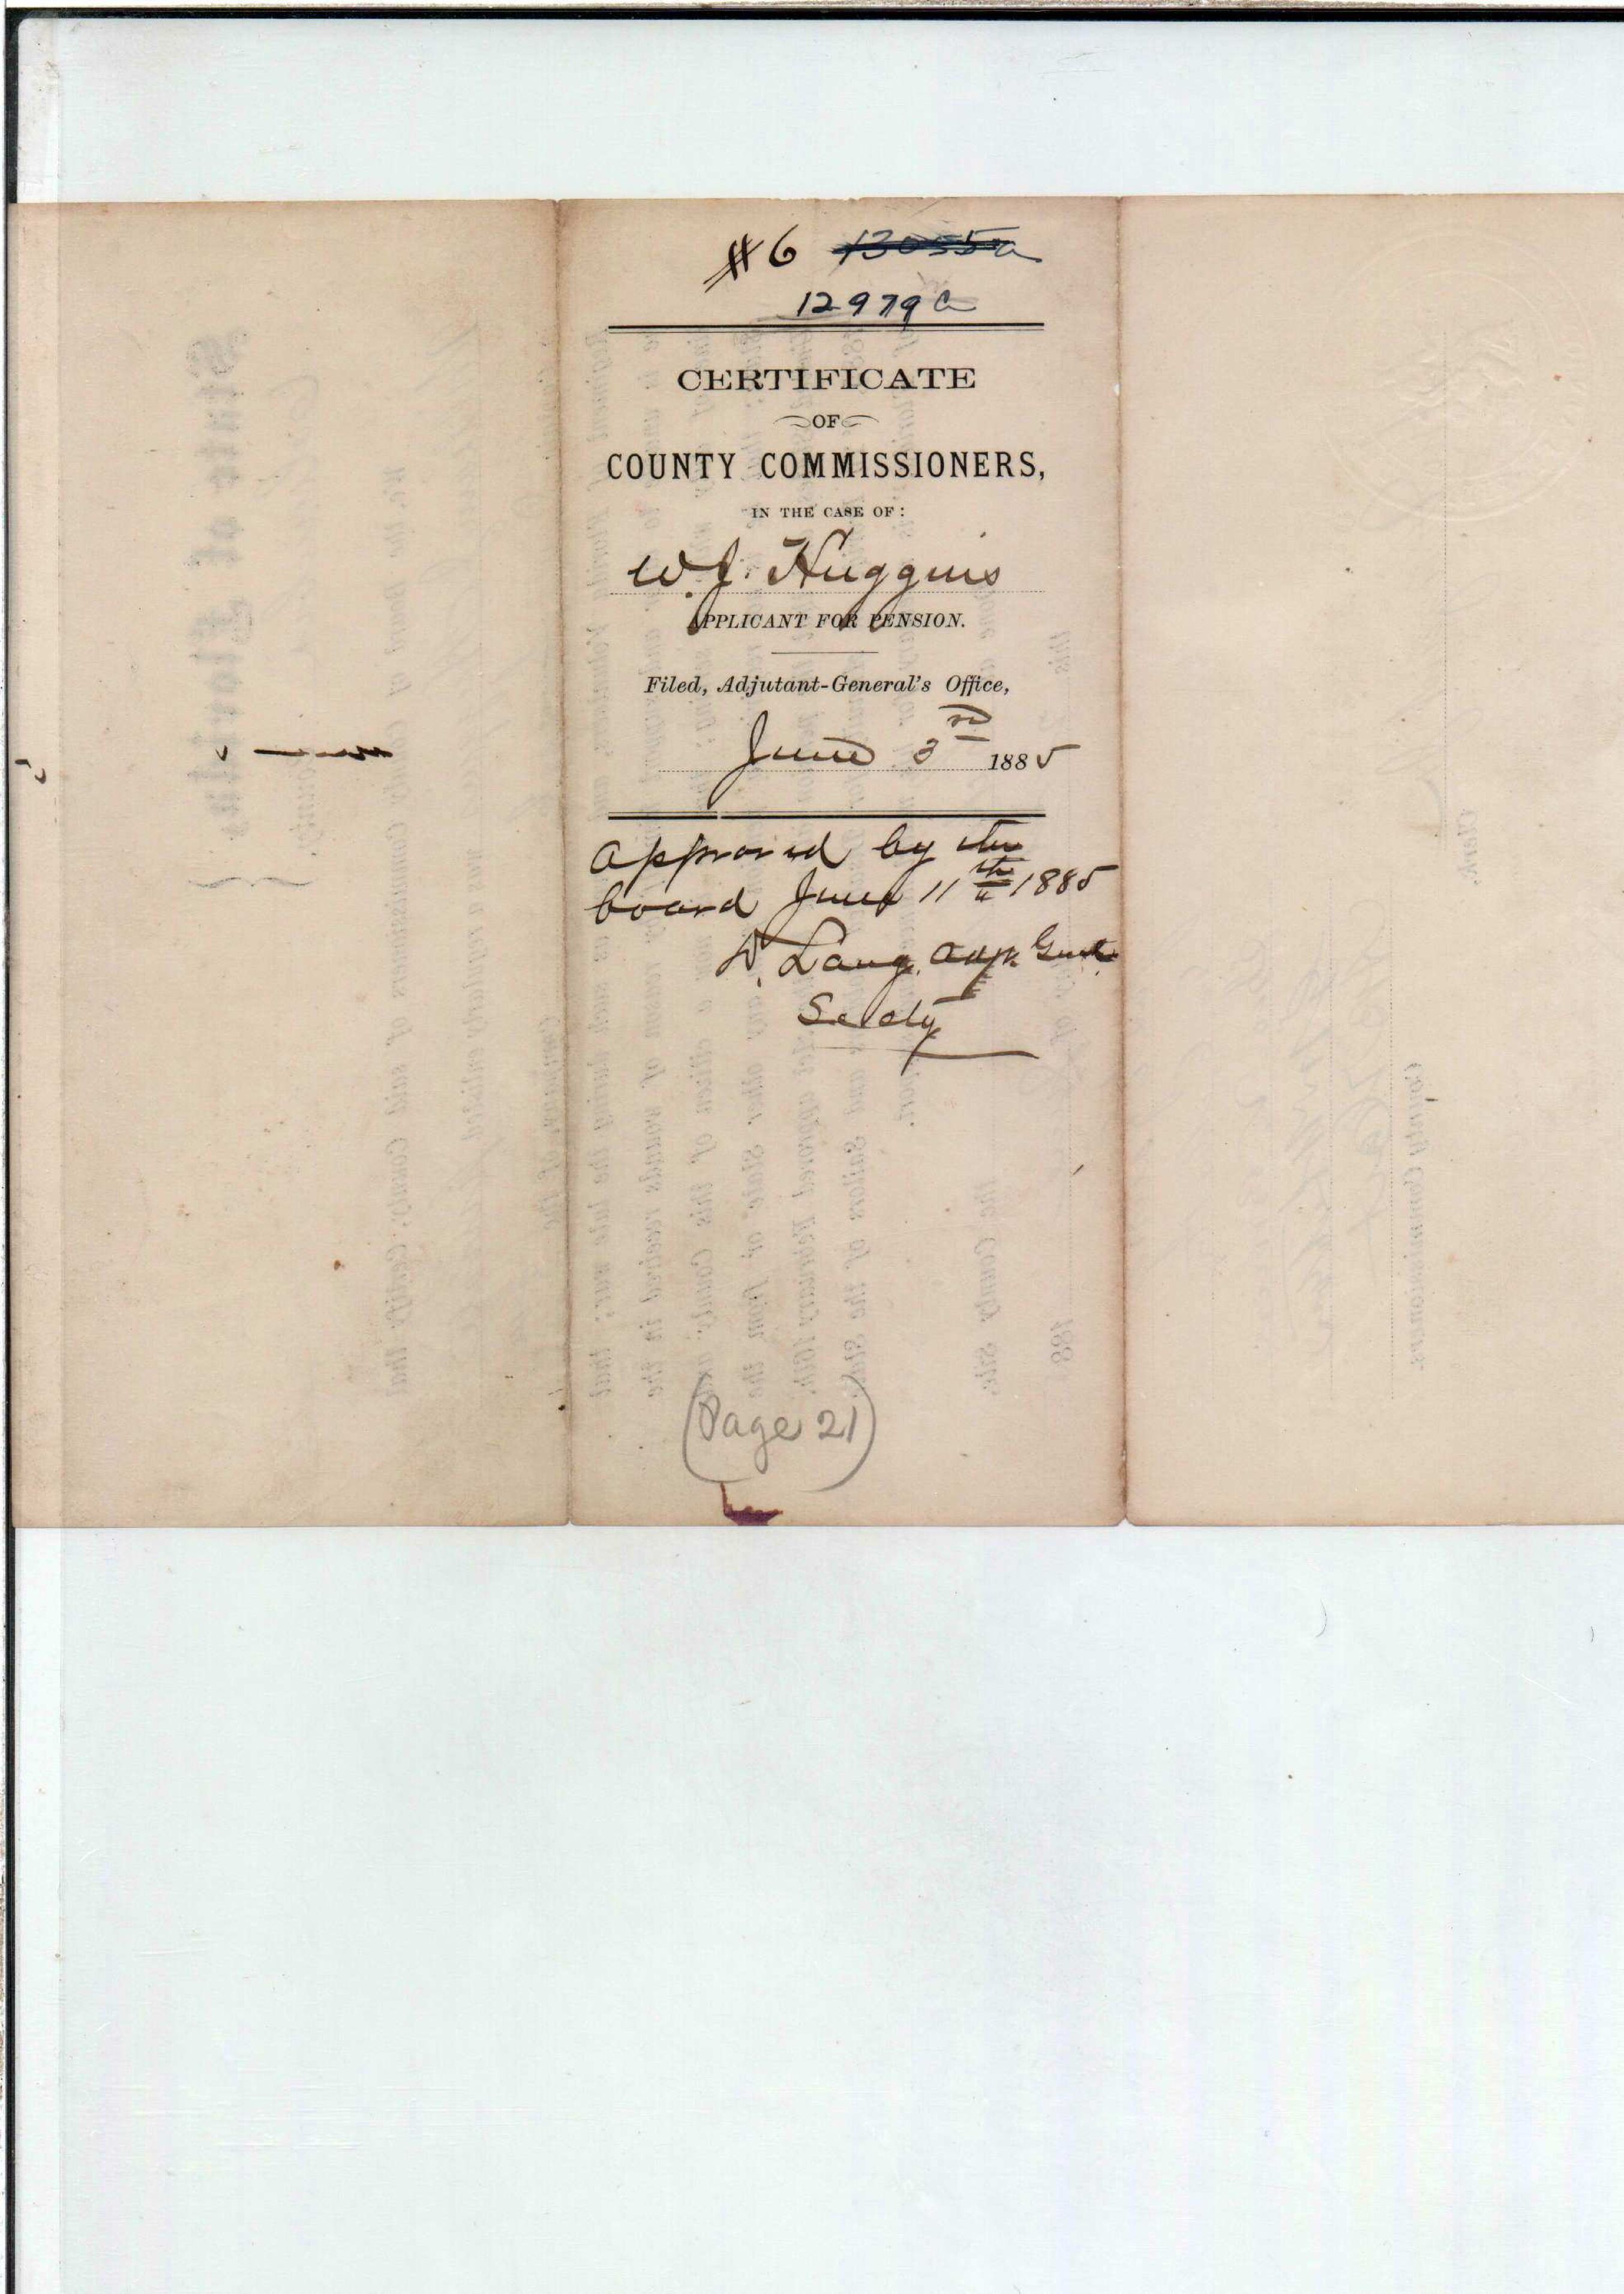 #6 13055a
12979 a
CERTIFICATE
OF
COUNTY COMMISSIONERS,
IN THE CASE OF:
W. J. Huggins
APPLICANT FOR PENSION.
Filed, Adjutant-General's Office,
June 3rd 1885
approved by the
board June 11th 1885
D. Lang, Adjt Genl
Secty
(Page 21)